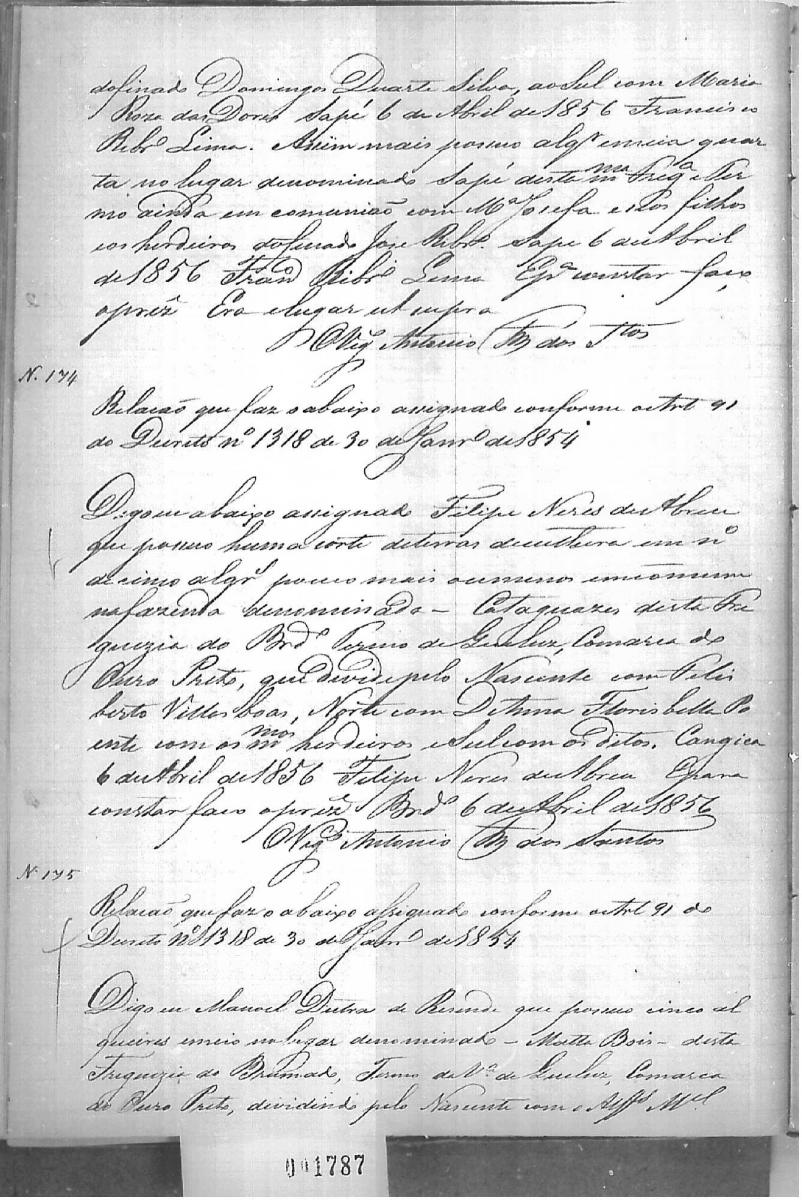 do finado Domingos Duarte Silva, ao Sul com Maria
Roza das Dores Sapé 6 de Abril de 1856 Francisco
Ribrº Lima. Assim mais possuo algr e meia quar
ta no lugar denominado Sapé desta mma Fregª e Ter
mo ainda em comunião com Mª Josefa e seos filhos
e os herdeiros do finado José Ribrº. Sapé 6 de Abril
de 1856 Francº Ribrº Lima E pª constar faço
o prezte Era e lugar ut supra
O Vigº Antonio Frz dos Stos
N. 174
Relacaõ que faz o abaixo assignado conforme o Art 91
do Decreto nº 1318 de 30 de Janrº de 1854
Digo eu abaixo assignado Filipe Neres de Abreu
que possuo huma corte de terras de cultura em nº
de cinco algrs pouco mais ou menos em cómum
na fazenda denominada - Cataguazes desta Fre
guezia do Brdº Termo de Queluz, Comarca do
Ouro Preto, que divide pelo Nascente com Felis
berto Villas boas, Norte com D. Anna Florisbella Po
ente com os mmos herdeiros e Sul com os ditos. Cangica
6 de Abril de 1856 Filipe Neres de Abreu E para
constar faço o prezte Brdº 6 de Abril de 1856
O Vigº Antonio Frz dos Santos
N. 175
Relacaõ que faz o abaixo assignado conforme o Art 91 do
Decreto nº 1318 de 30 de Janrº de 1854
Digo eu Manoel Dutra de Resende que possuo cinco al
queires e meio no lugar denominado - Matta Bois - desta
Freguezia do Brumado, Termo da Vª de Queluz, Comarca
do Ouro Preto, dividindo pelo Nascente com o Alfs Mel
001787